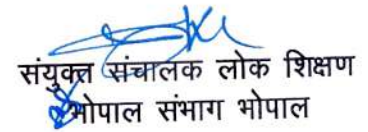 संयुक्त संचालक लोक शिक्षण
भोपाल संभाग भोपाल